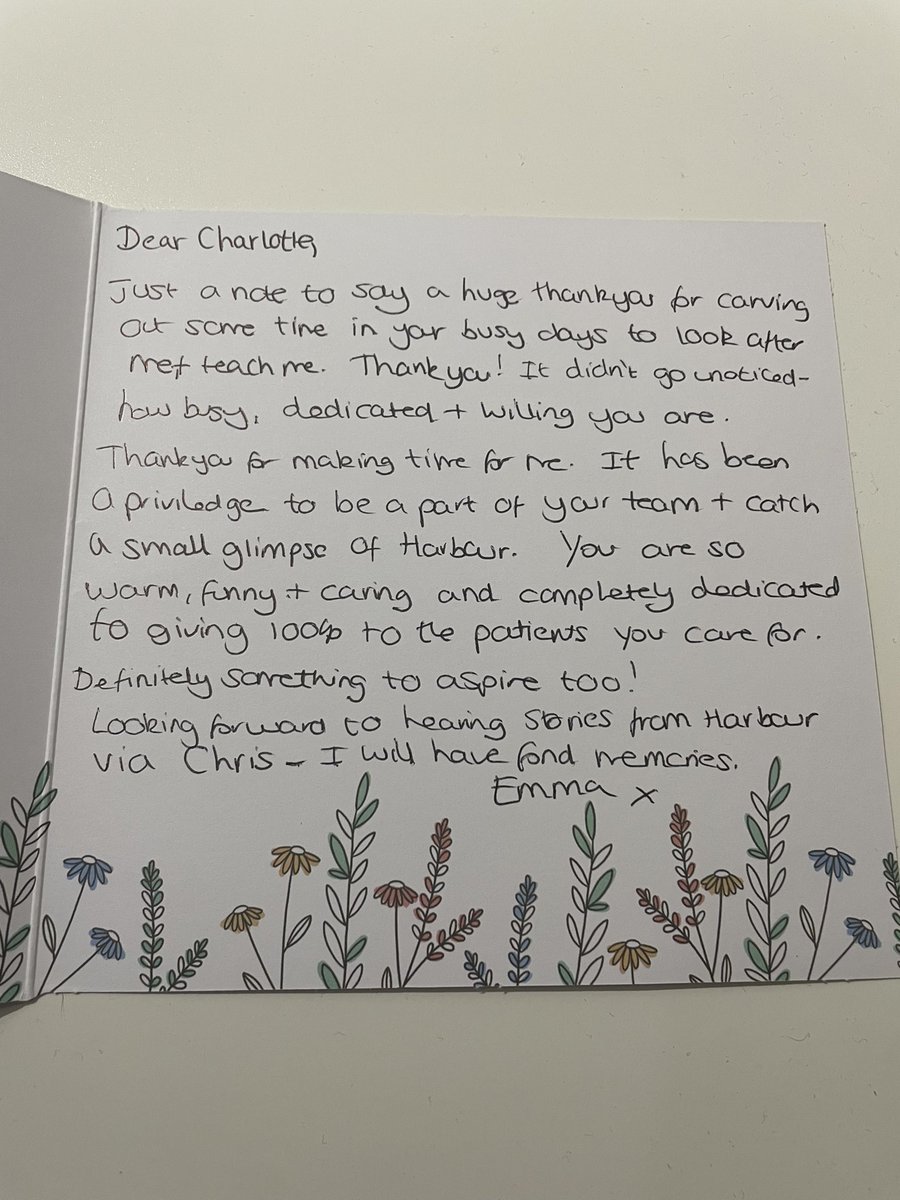 Dear Charlotte,
Just a note to say a huge thankyou for carving
out some time in your busy days to look after
me + teach me. Thankyou! It didn't go unoticed -
how busy, dedicated + willing you are.
Thankyou for making time for me. It has been
a priviledge to be a part of your team + catch
a small glimpse of Harbour. You are so
warm, funny + caring and completely dedicated
to giving 100% to the patients you care for.
Definitely something to aspire too!
Looking forward to hearing stories from Harbour
via Chris - I will have fond memories.
Emma x